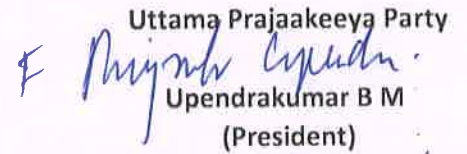 Uttama Prajaakeeya Party
Upendrakumar B M
(President)